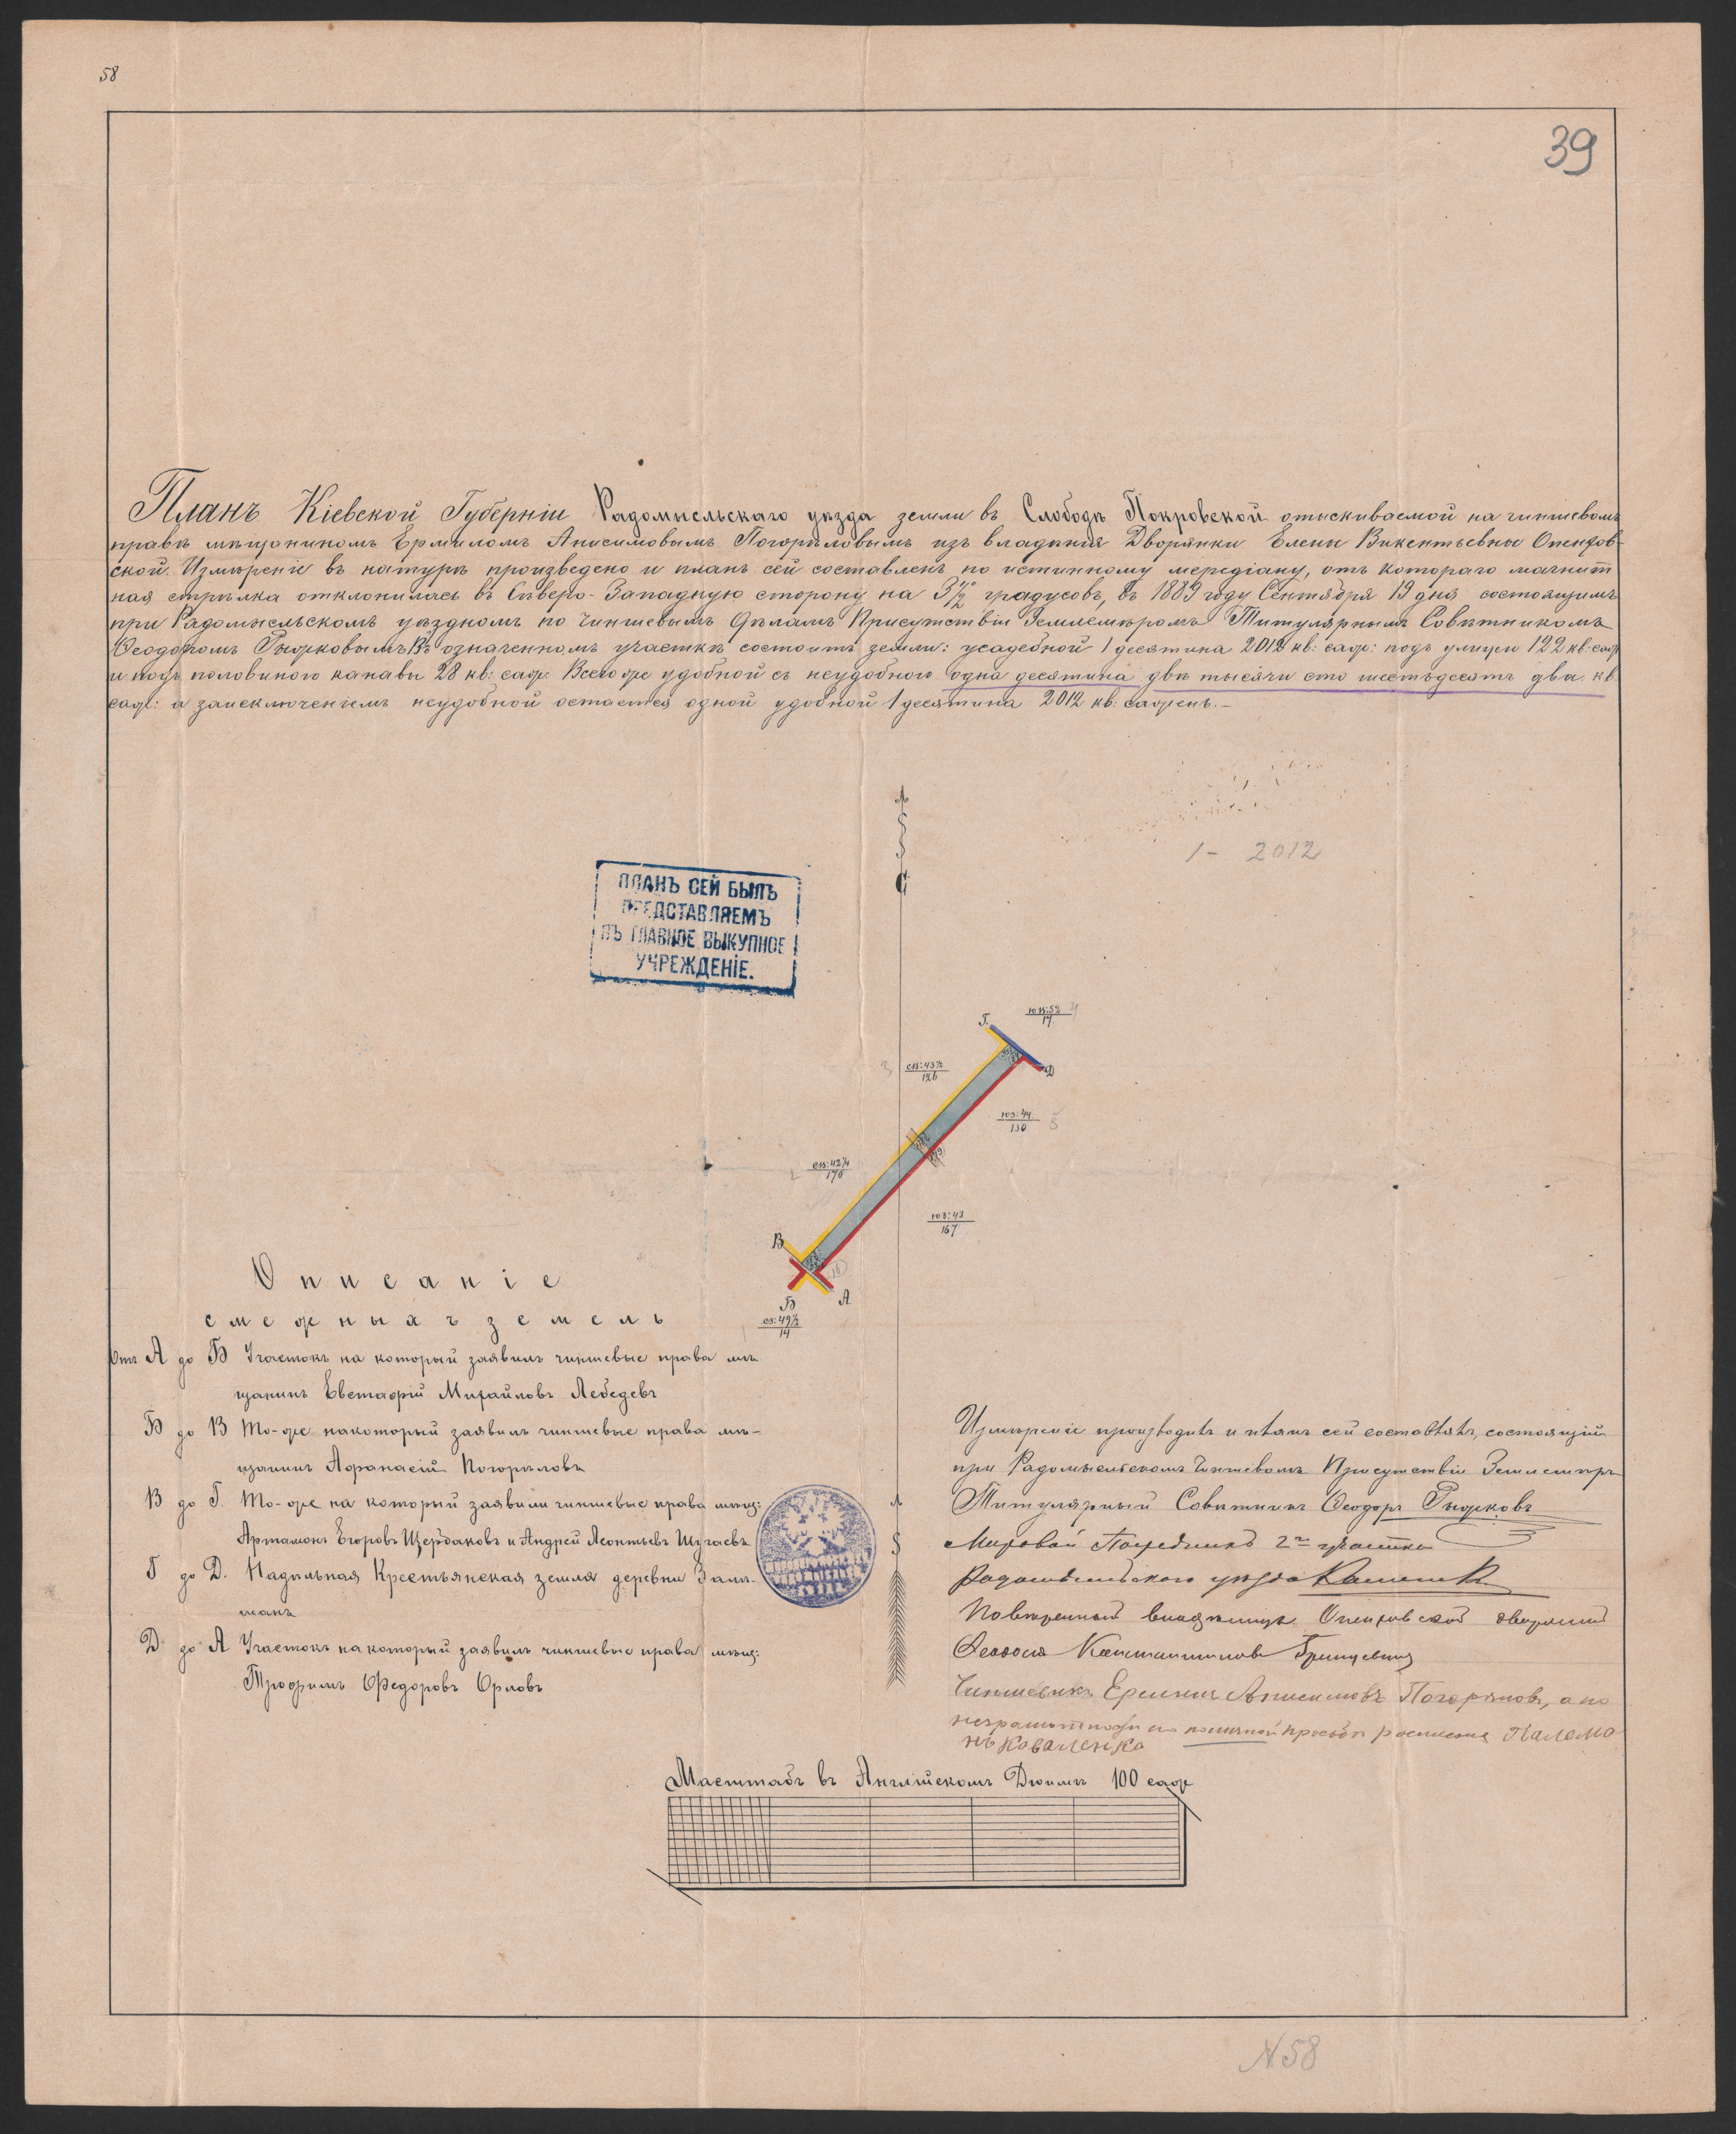 58
39
Планъ Кіевской Губерніи Радомысльскаго уѣзда земли въ Слободѣ Покровской отыскиваемой на чиншевомъ
правѣ мѣщаниномъ Ермиломъ Анисимовымъ Погорѣловымъ изъ владѣнія Дворянки Елены Викентьевны
ской. Измѣреніе въ натурѣ произведено и планъ сей составленъ по истинному меридіану, отъ котораго магнит
ная стрѣлка отклонилась въ Сѣверо-Западную сторону на 3½° градусовъ, въ 1889 году Сентября 19 дня состоящимъ
при Радомысльскомъ уѣздномъ по Чиншевымъ Дѣламъ Присутствіи Землемѣромъ Титулярнымъ Совѣтникомъ
Ѳеодоромъ Рыжковымъ. Въ означенномъ участкѣ состоитъ земли: усадебной 1 десятина 2012 кв: саж: подъ улицею 122 кв: саж
и подъ половиною канавы 28 кв: саж: Всего же удобной съ неудобною одна десятина двѣ тысячи сто шестьдесятъ два кв:
саж: а заисключеніемъ неудобной остается одной удобной 1 десятина 2012 кв: сажень. –
1 – 2012
С
ПЛАНЪ СЕЙ БЫЛЪ
ПРЕДСТАВЛЯЕМЪ
ВЪ ГЛАВНОЕ ВЫКУПНОЕ
УЧРЕЖДЕНІЕ.
Г.
юв:52
17
4
3
св:43½
126
Д
юз:44
130
5
2
св:42¼
170
юз:43
167
В
Б
А
сз:49½
14
Описаніе
смежныхъ земель
Отъ А до Б Участокъ на который заявилъ чиншевые права мѣ-
щанинъ Евстафій Михайловъ Лебедевъ
Б до В То-же накоторый заявилъ чиншевые права мѣ-
щанинъ Афанасій Погорѣловъ
В до Г. То-же на который заявили чиншевые права мѣщ:
Артамонъ Егоровъ Щербаковъ и Андрей Леонтьевъ
Г до Д. Надѣльная Крестьянская земля деревни Залѣ-
шанъ
Д до А Участокъ накоторый заявилъ чиншевые права мѣщ:
Трофимъ Федоровъ Орловъ
Измѣреніе производилъ и планъ сей составлялъ, состоящій
при Радомысльскомъ Чиншевомъ Присутствіи Землемѣръ
Титулярный Совѣтникъ Ѳеодоръ Рыжковъ
Мировой Посредникъ 2го участка
Радомысльскаго уѣзда
Повѣренный владѣлицы дворянинъ
Константиновъ
Чиншевикъ Ермилъ Анисимовъ Погорѣловъ, а по
неграмотности по личной просьбѣ росписался Палемо
нъ Коваленко
Масштабъ въ Англійскомъ Дюймѣ 100 саж
N 58